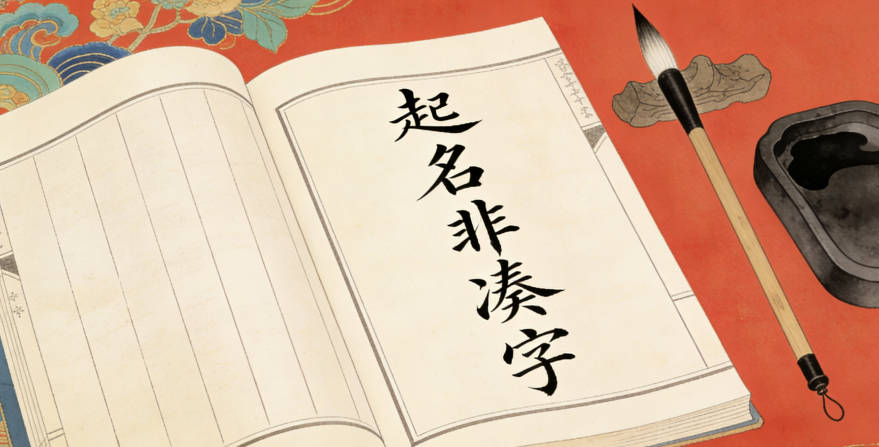 起名非凑字